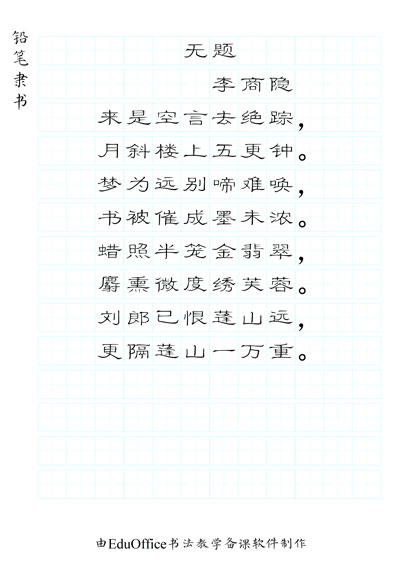 铅笔隶书
无题
李商隐
来是空言去绝踪，
月斜楼上五更钟。
梦为远别啼难唤，
书被催成墨未浓。
蜡照半笼金翡翠，
麝熏微度绣芙蓉。
刘郎已恨蓬山远，
更隔蓬山一万重。
由EduOffice书法教学备课软件制作